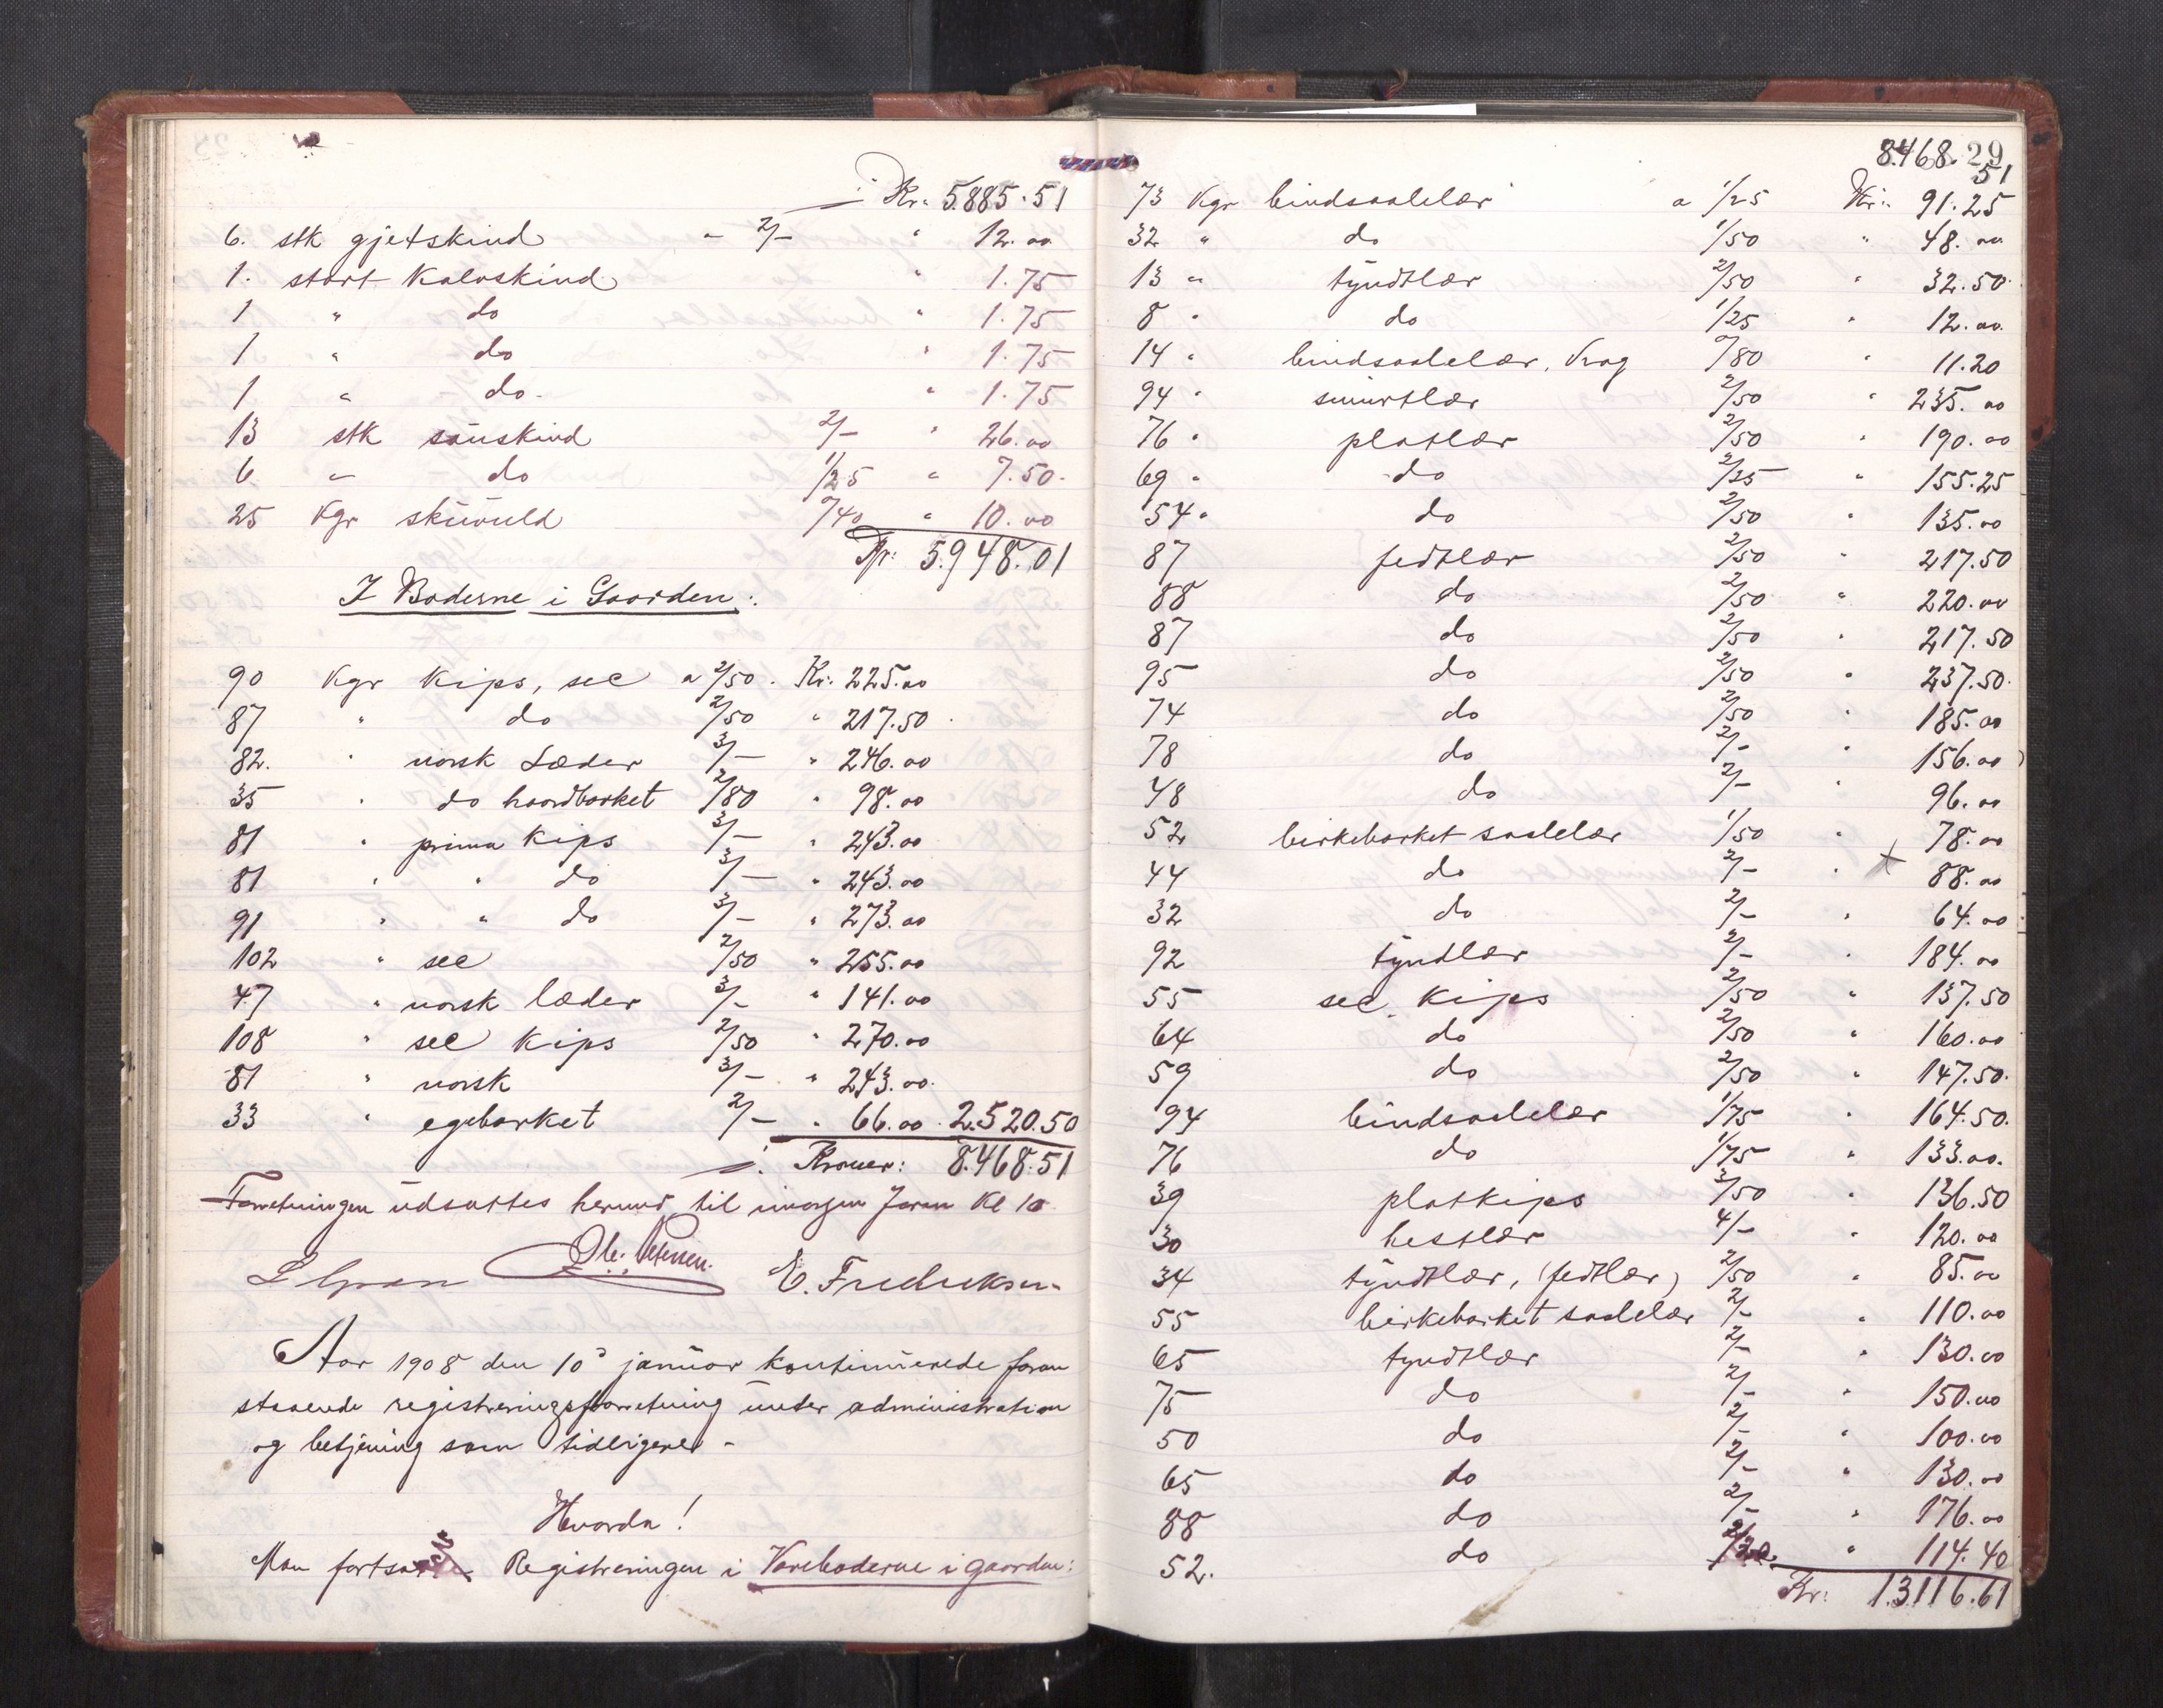 Kr. 5.885.51
6. stk gjetskind " 2/- " 12.00
1. stort Kalvskind " 1.75
1 " do " 1.75
1 " do " 1.75
1 " do " 1.75
13 stk sauskind 2/- " 26.00
6 " do 1/25 " 7.50
25 Kgr skuvuld 0/40 " 10.00
Kr: 5.948.01
I Boderne i Gaarden:
90 Kgr Kips, sec a 2/50 Kr. 225.00
87 " do 2/50 " 217.50
82. " norsk Læder 3/- " 246.00
35 " do haardbarket 2/80 " 98.00
81 " prima Kips 3/- " 243.00
81 " " do 3/- " 243.00
91 " " do 3/- " 273.00
102 " sec 2/50 " 255.00
47 " norsk læder 3/- " 141.00
108 " sec Kips 2/50 " 270.00
81 " norsk 3/- " 243.00
33 " egebarket 2/- " 66.00 2.520.50
Kroner: 8.468.51
Forretningen udsattes herund til imorgen Form Kl 10
Ole Petersen
E. Fredriksen
Aar 1908 den 10 januar kontinuerede foran
staaende registreringsforretning under administration
og betjening som tidligere -
Hvorda!
Man fortsatte Registreringen i Vareboderne i gaarden:
29
8.468.51
73 Kgr bindsaalelær a 1/25 Kr: 91.25
32 " do 1/50 " 48.00
13 " tyndtlær 2/50 " 32.50
8 " do 1/25 " 12.00
14 " bindsaalelær, Vrag 0/80 " 11.20
94 " smurtlær 2/50 " 235.00
76 " platlær 2/50 " 190.00
69 " do 2/25 " 155.25
54 " do 2/50 " 135.00
87 fedtlær 2/50 " 217.50
88 do 2/50 " 220.00
87 do 2/50 " 217.50
95 do 2/50 " 237.50
74 do 2/50 " 185.00
78 do 2/- " 156.00
48 do 2/- " 96.00
52 birkebarket saalelær 1/50 " 78.00
44 do 2/- " 88.00
32 do 2/- " 64.00
92 tyndlær 2/- " 184.00
55 sec. Kips 2/50 " 137.50
64 do 2/50 " 160.00
59 do 2/50 " 147.50
94 bindsaalelær 1/75 " 164.50
76 do 1/75 " 133.00
39 platkips 3/50 " 136.50
30 hestlær 4/- " 120.00
34 tyndtlær, (fedtlær) 2/50 " 85.00
55 birkebarket saalelær 2/- " 110.00
65 tyndtlær 2/- " 130.00
75 do 2/- " 150.00
50 do 2/- " 100.00
65 do 2/- " 130.00
88 do 2/- " 176.00
52. do 2/20 " 114.40
Kr: 13.116.61